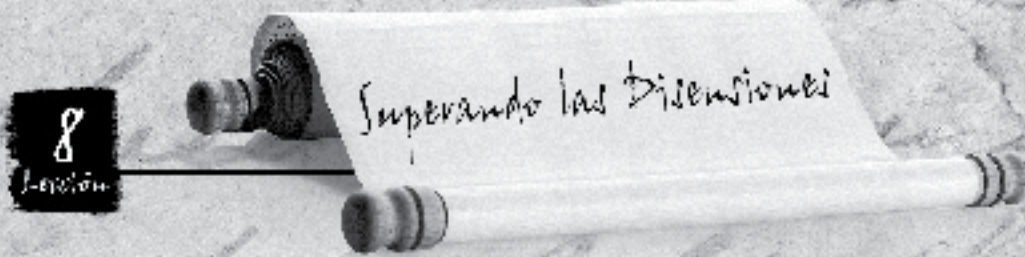 8
Lección
Superando las Disensiones